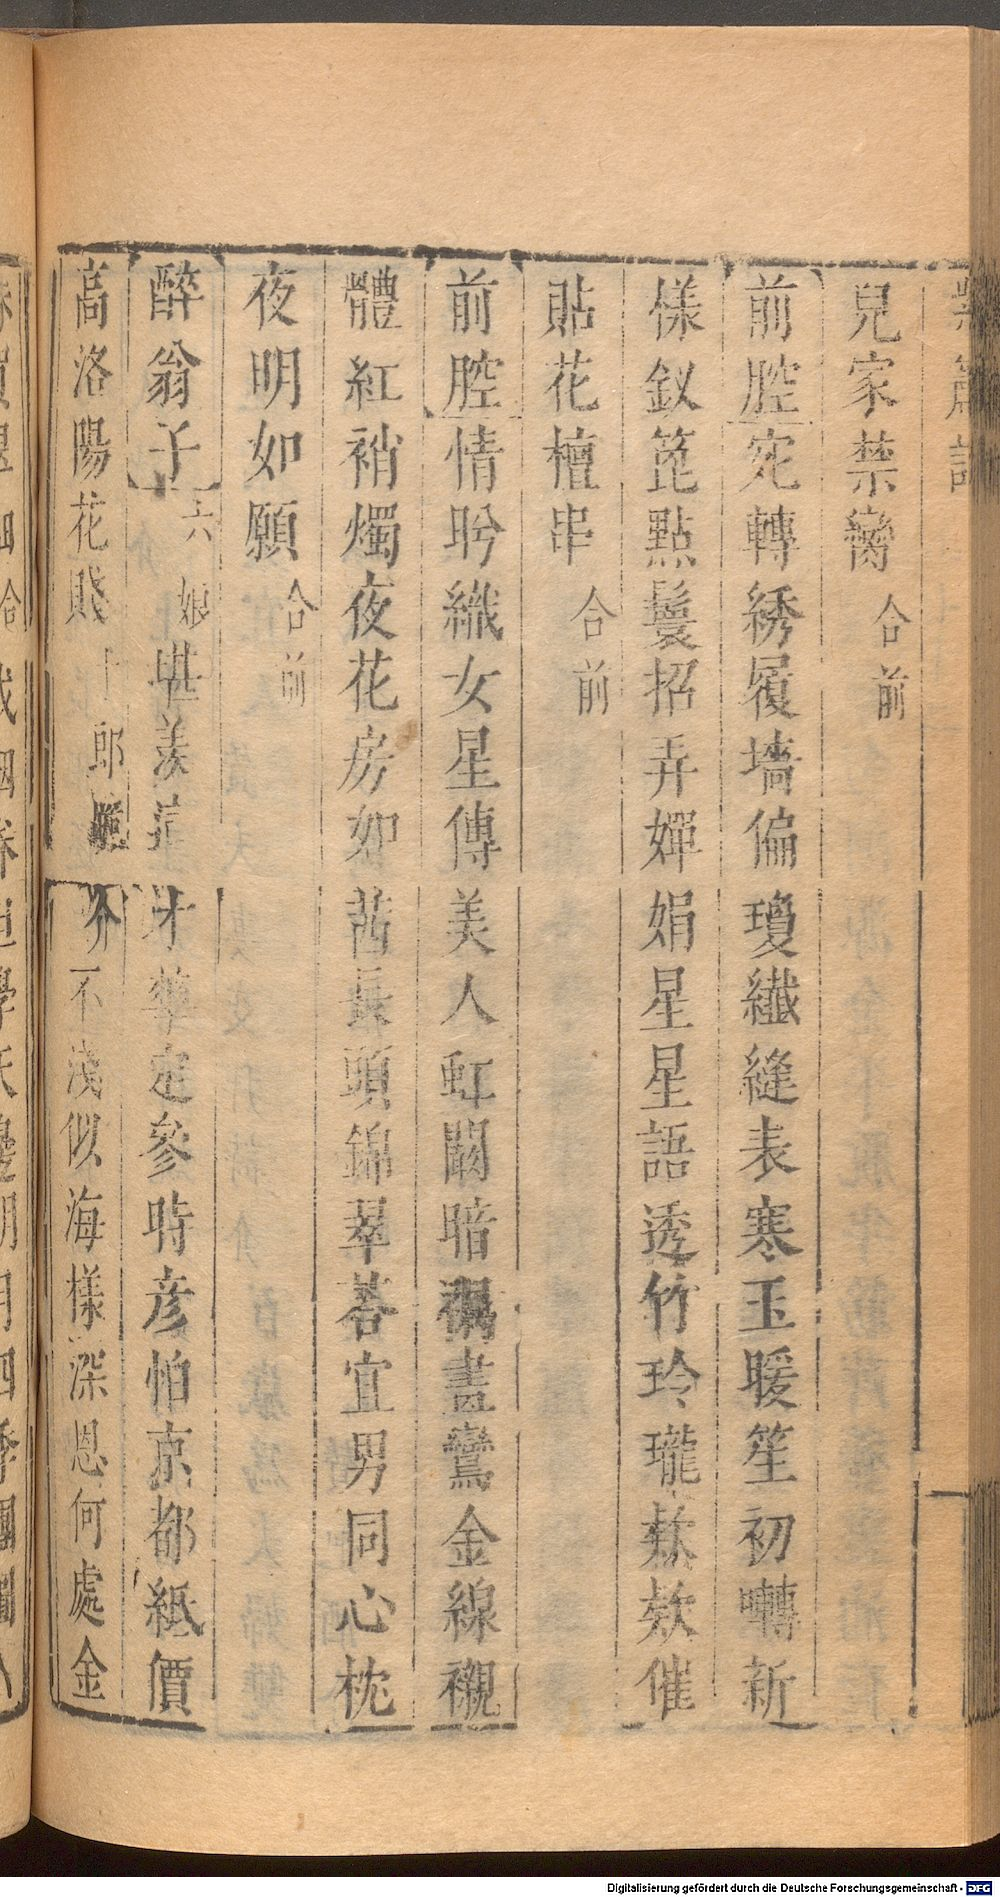 紫簫記
兒家禁臠合前
前腔宛轉綉履墻偏瓊纖縫表寒玉暖笙初囀新
㨾釵箆點鬟招弄嬋娟星星語透竹玲瓏欸欸催
貼花檀串合前
前腔情盻織女星傳美人虹闕暗襯畫鸞金線襯
體紅褙燭夜花房如茜長頭錦翠荅宜男同心枕
夜明如願合前
醉翁子六娘堪羨這才華定參時彦怕京都紙價
高洛陽花賤十郎介不淺似海樣深恩何處金
Digitalisierung gefördert durch die Deutsche Forschungsgemeinschaft - DFG